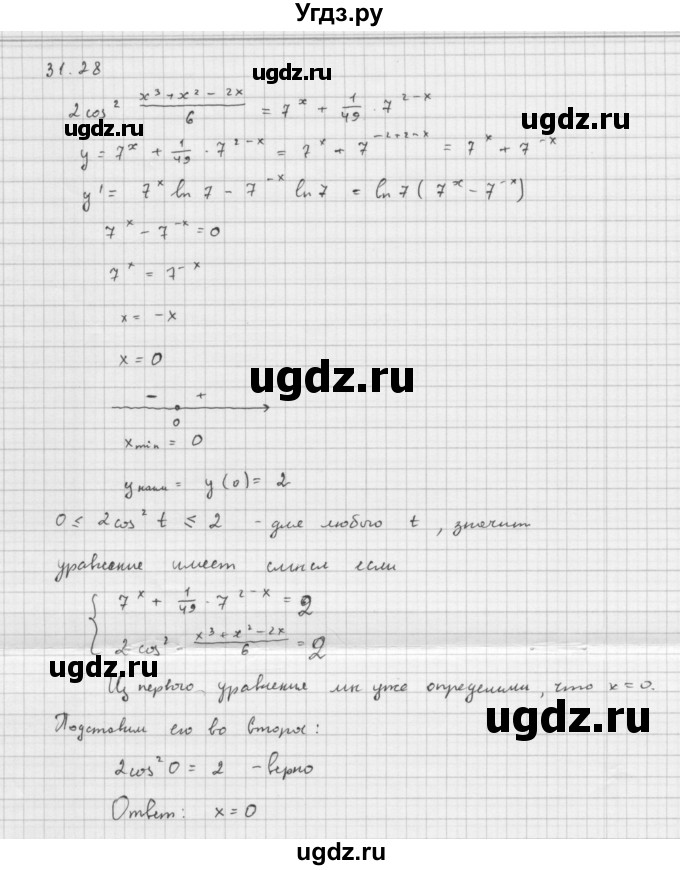 Угдз.ру
31.28
ugdz.ru
2cos² (x³ + x² − 2x)/6 = 7^x + 1/49 · 7^(2−x)
ugdz.ru
ugdz.ru
y = 7^x + 1/49 · 7^(2−x) = 7^x + 7^(−2+2−x) = 7^x + 7^(−x)
y' = 7^x ln 7 − 7^(−x) ln 7 = ln 7 (7^x − 7^(−x))
7^x − 7^(−x) = 0
7^x = 7^(−x)
x = −x
x = 0
ugdz.ru
− +
0
x min = 0
y наим = y(0) = 2
ugdz.ru
0 ≤ 2cos² t ≤ 2 − для любого t, значит
уравнение имеет смысл если
{ 7^x + 1/49 · 7^(2−x) = 2
2cos² (x³ + x² − 2x)/6 = 2
ugdz.ru
ugdz.ru
Из первого уравнения мы уже определили, что x = 0.
ugdz.ru
Подставим его во второе:
2cos² 0 = 2 − верно
Ответ: x = 0
ugdz.ru
ugdz.ru